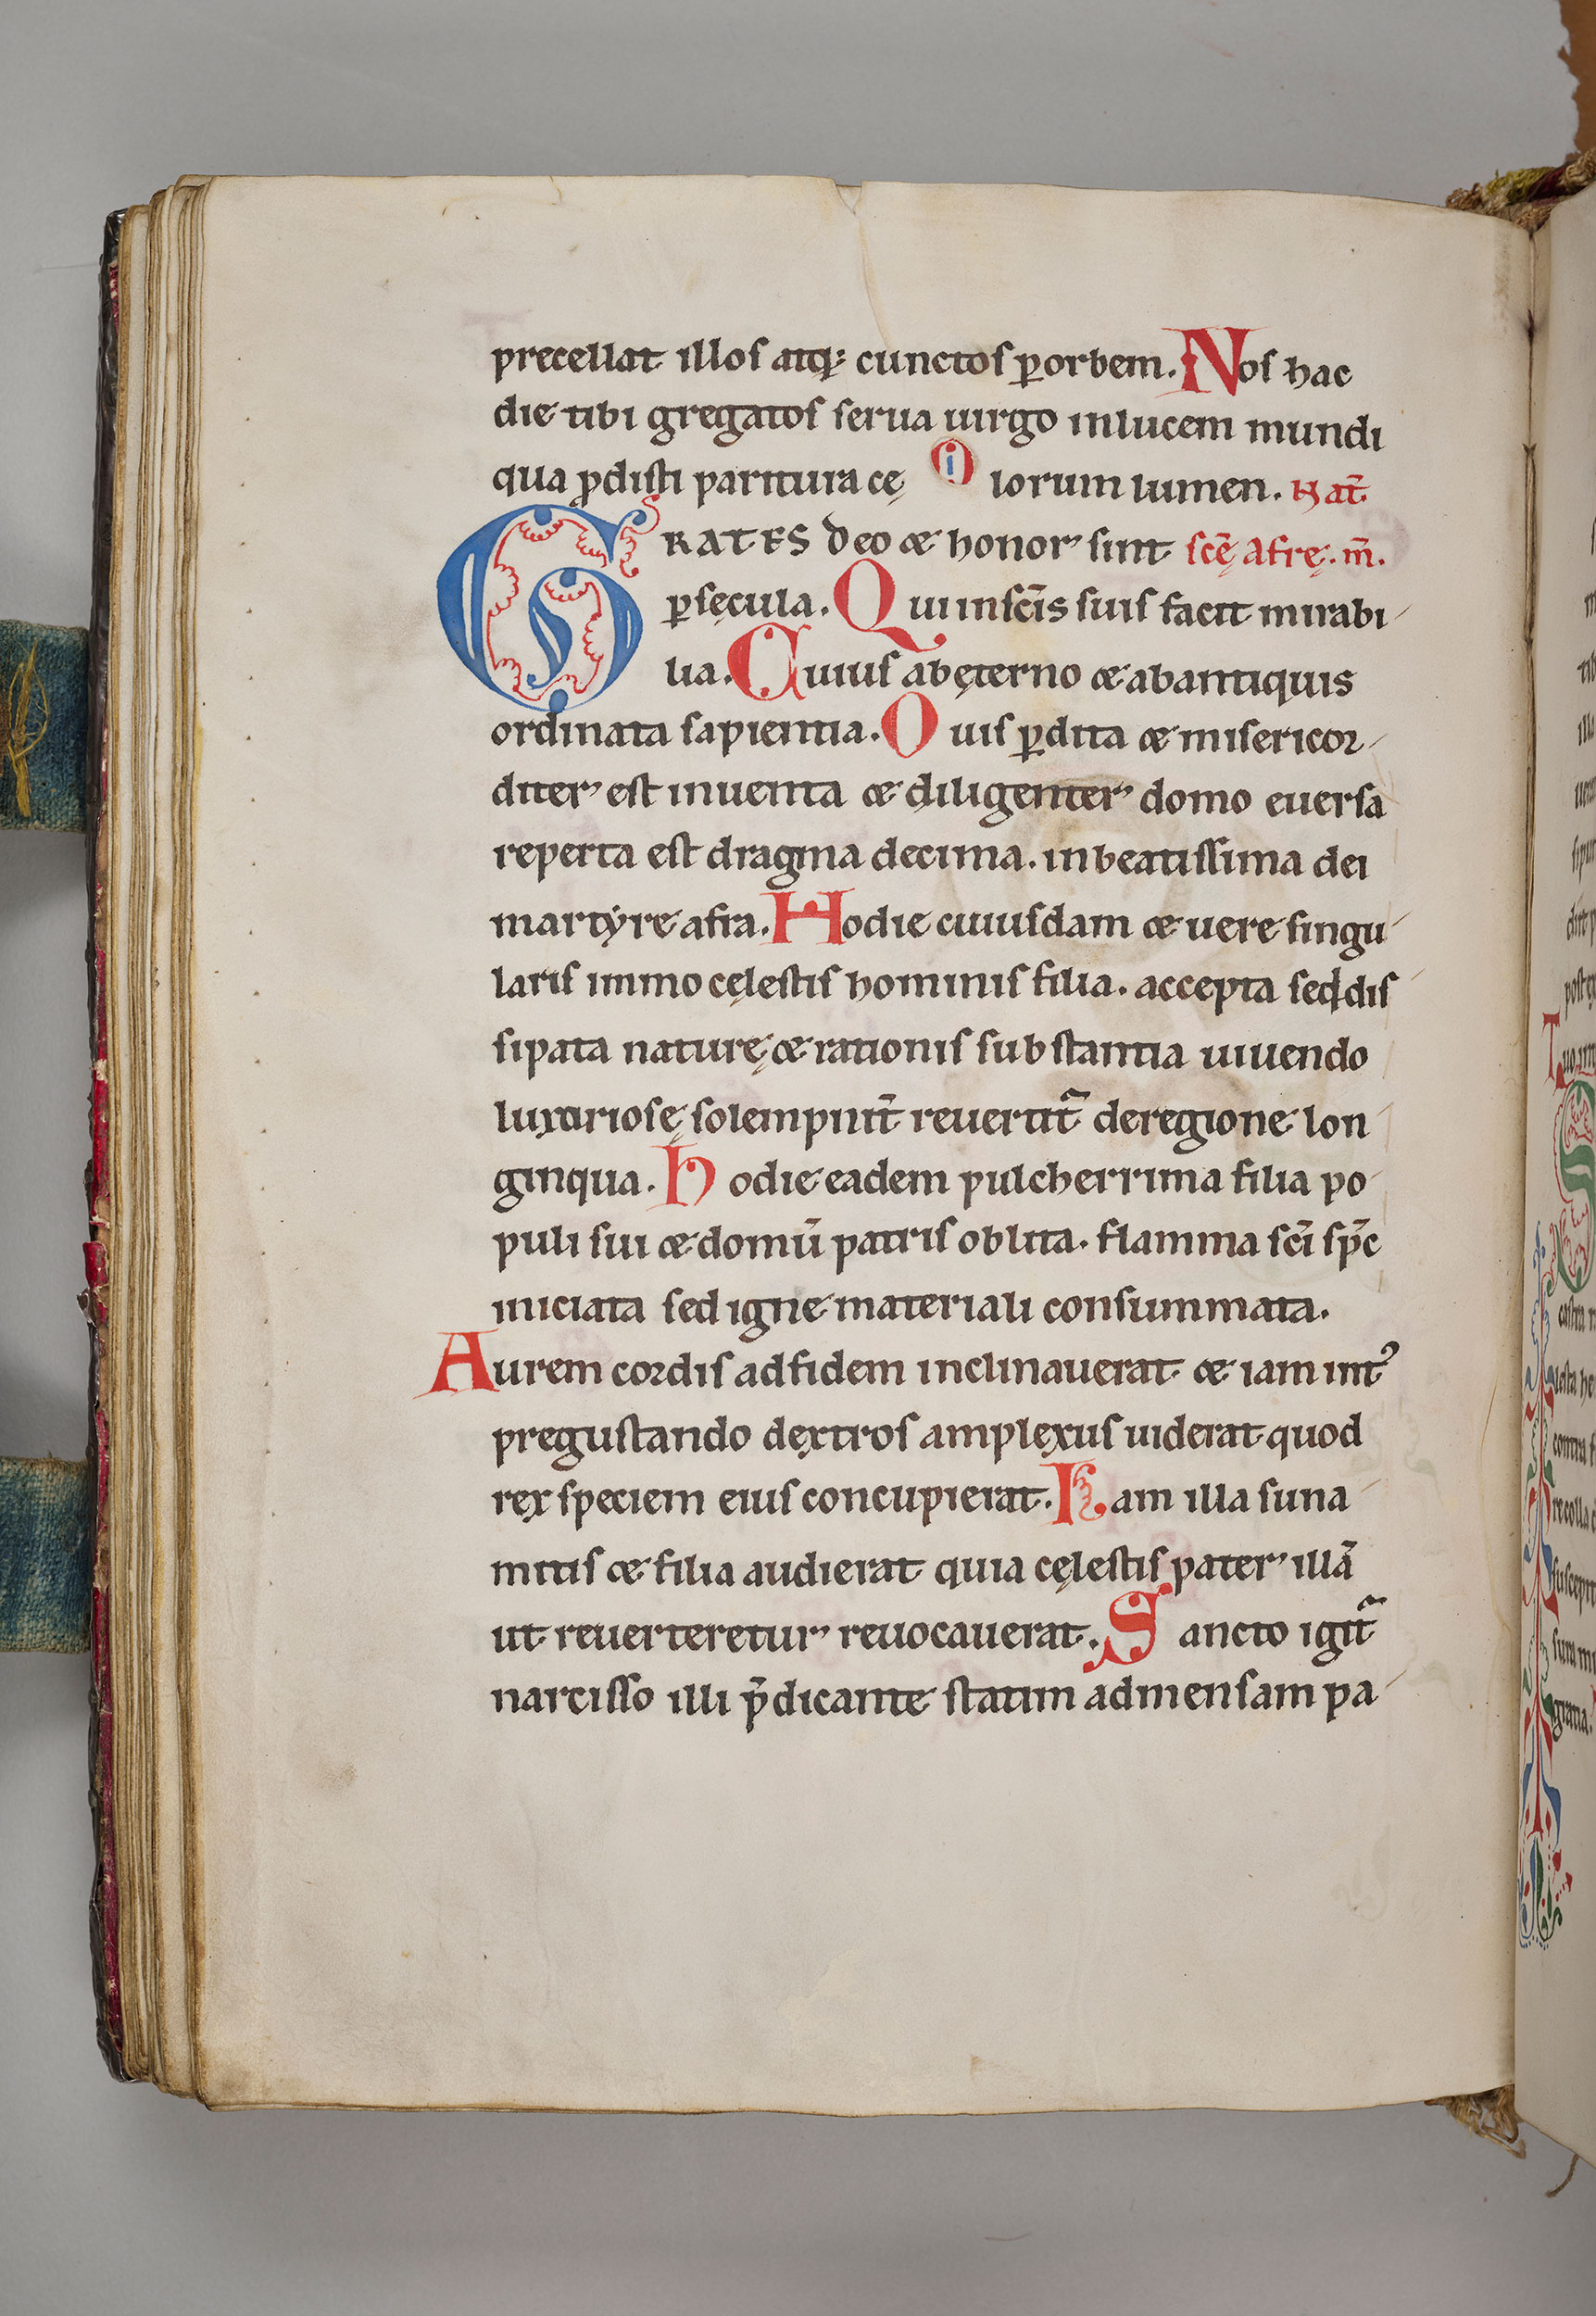 precellat illoſ atq; cunctoſ ꝑorbem. Noſ hac
die tibi gregatoſ ſerua uirgo inlucem mundi
qua ꝓdiſti paritura cę lorum lumen. Nat̄
GRATES deo & honor ſint ſcę̄ Afrę. m̄.
ꝑſęcula. Qui inſcīs ſuiſ facit mirabi
lia. Cuiuſ abęterno & abantiquis
ordinata ſapientia. Ouiſ ꝑdita & miſericor
diter eſt inuenta & diligenter domo euerſa
reperta eſt dragma decima. inbeatiſſima dei
martyre afra. Hodie cuiuſdam & uere ſingu
lariſ immo cęleſtiſ hominiſ filia. accepta ſed diſ
ſipata naturę & rationiſ ſubſtantia uiuendo
luxurioſe ſolempnit̄ reuertit̄ deregione lon
ginqua. Hodie eadem pulcherrima filia po
puli ſui & domū patriſ oblita. flamma ſcī ſpc̄
iniciata ſed igne materiali conſummata.
Aurem cordiſ adfidem inclinauerat & iam int᾽
preguſtando dextroſ amplexuſ uiderat quod
rex ſpeciem eiuſ concupierat. Nam illa ſuna
mitiſ & filia audierat quia cęleſtiſ pater illā
ut reuerteretur reuocauerat. Sancto igit̄
narciſſo illi p̄dicante ſtatim admenſam pa